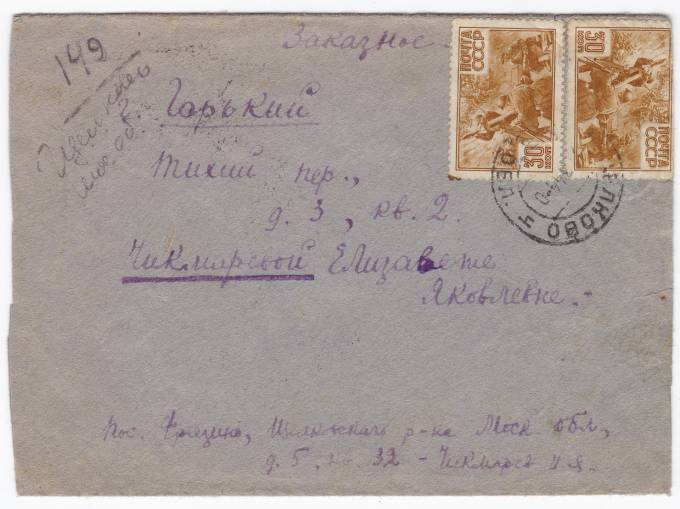 Заказное
149
Щелково
Моск. об.
Горький
Тихий пер.,
д. 3, кв. 2.
Чикмаревой Елизавете
Яковлевне.-
Пос. Фрязино, Щелковского р-на Моск. обл,
д. 5, кв. 32 - Чикмарев И.Я.
ПОЧТА
СССР
30
КОП
ПОЧТА
СССР
30
КОП
ЩЕЛКОВО